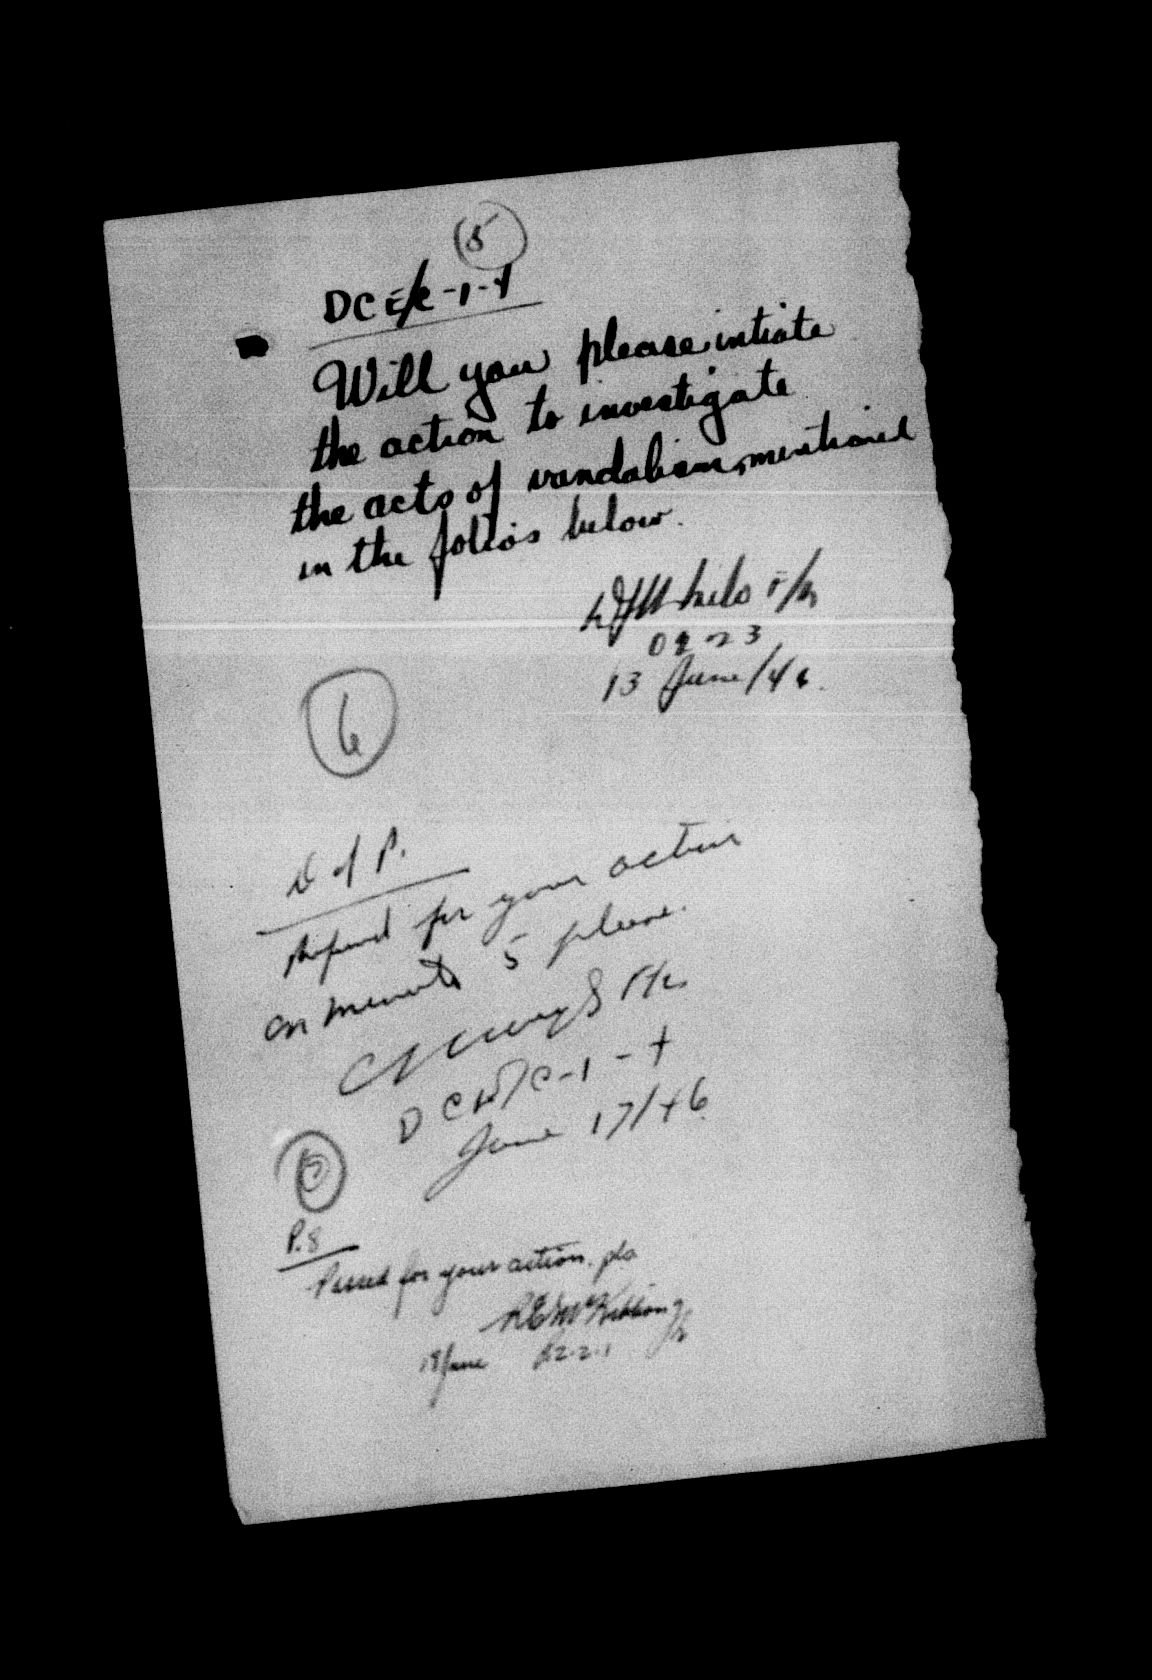 5
DCE/C-1-4
Will you please intiate
the action to investigate
the acts of vandalism, mentioned
in the folios below.
F/L
13 June/46.
6
D of P.
Referred for your action
on minute 5 please.
F/L
DCE/C-1-4
June 17/46
P.8
Passed for your action. pls
R E McKibbon
18 June